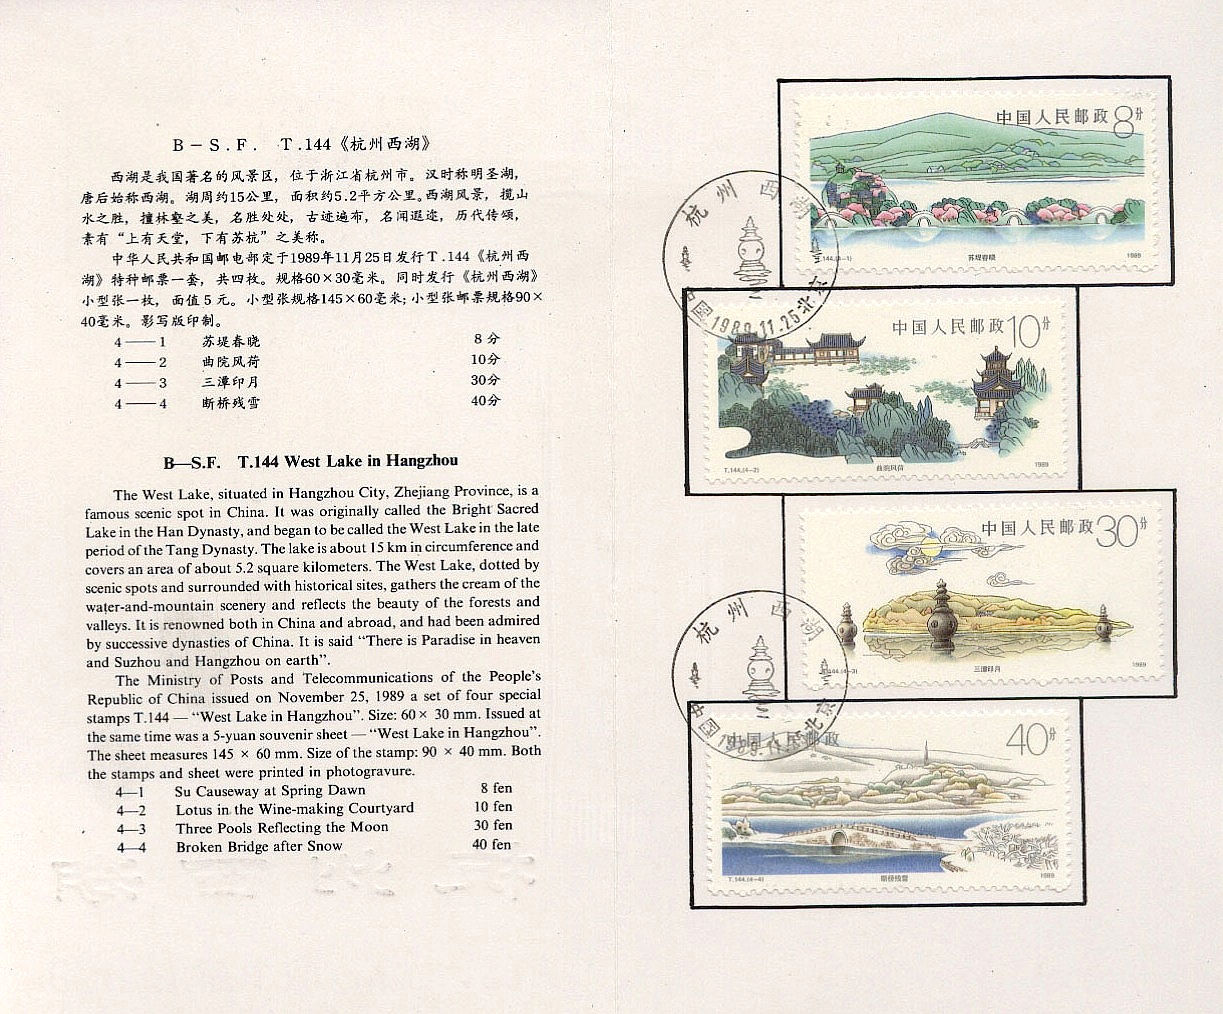 B－S.F. T.144《杭州西湖》
西湖是我国著名的风景区，位于浙江省杭州市。汉时称明圣湖，
唐后始称西湖。湖周约15公里，面积约5.2平方公里。西湖风景，揽山
水之胜，撞林壑之美，名胜处处，古迹遍布，名闻遐迩，历代传颂，
素有“上有天堂，下有苏杭”之美称。
中华人民共和国邮电部定于1989年11月25日发行T.144《杭州西
湖》特种邮票一套，共四枚。规格60×30毫米。同时发行《杭州西湖》
小型张一枚，面值5元。小型张规格145×60毫米；小型张邮票规格90×
40毫米。影写版印制。
4——1 苏堤春晓 8分
4——2 曲院风荷 10分
4——3 三潭印月 30分
4——4 断桥残雪 40分
B—S.F. T.144 West Lake in Hangzhou
The West Lake, situated in Hangzhou City, Zhejiang Province, is a
famous scenic spot in China. It was originally called the Bright Sacred
Lake in the Han Dynasty, and began to be called the West Lake in the late
period of the Tang Dynasty. The lake is about 15 km in circumference and
covers an area of about 5.2 square kilometers. The West Lake, dotted by
scenic spots and surrounded with historical sites, gathers the cream of the
water-and-mountain scenery and reflects the beauty of the forests and
valleys. It is renowned both in China and abroad, and had been admired
by successive dynasties of China. It is said “There is Paradise in heaven
and Suzhou and Hangzhou on earth”.
The Ministry of Posts and Telecommunications of the People’s
Republic of China issued on November 25, 1989 a set of four special
stamps T.144 — “West Lake in Hangzhou”. Size: 60 × 30 mm. Issued at
the same time was a 5-yuan souvenir sheet — “West Lake in Hangzhou”.
The sheet measures 145 × 60 mm. Size of the stamp: 90 × 40 mm. Both
the stamps and sheet were printed in photogravure.
4—1 Su Causeway at Spring Dawn 8 fen
4—2 Lotus in the Wine-making Courtyard 10 fen
4—3 Three Pools Reflecting the Moon 30 fen
4—4 Broken Bridge after Snow 40 fen
中国人民邮政 8分
杭州西湖
144.(4-1) 苏堤春晓 1989
中国 1989.11.25 北京
中国人民邮政 10分
T.144.(4-2) 曲院风荷 1989
中国人民邮政 30分
杭州西湖
144.(4-3) 三潭印月 1989
中国 1989.11.25 北京
中国人民邮政 40分
T.144.(4-4) 断桥残雪 1989